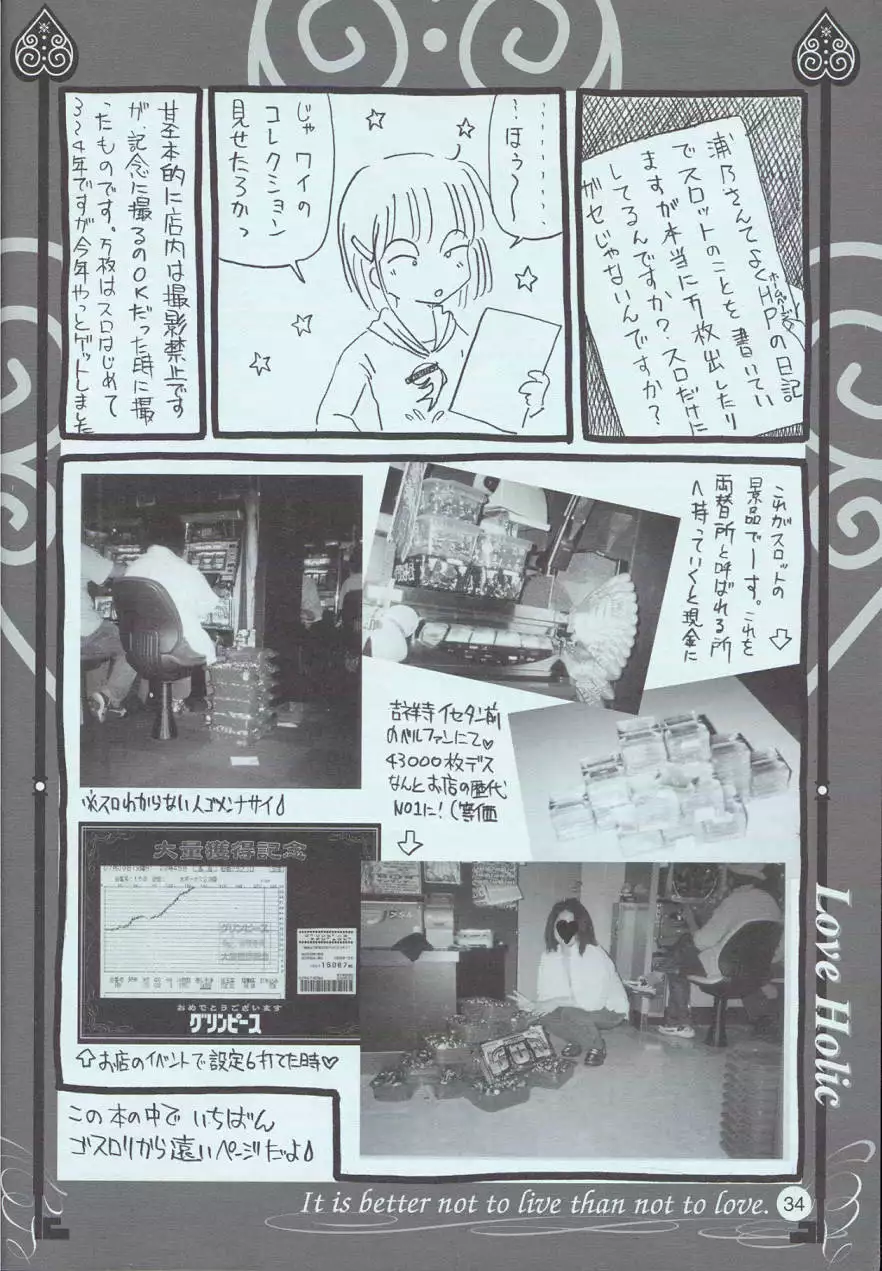 浦乃さんてよくHPの日記
でスロットのことを書いてい
ますが本当に万枚出したり
してるんですか？スロだけに
ガセじゃないんですか？
………
…ほう〜
じゃワイの
コレクション
見せたろかっ
基本的に店内は撮影禁止です
が、記念に撮るのOKだった時に撮
ったものです。万枚はスロはじめて
3〜4年ですが今年やっとゲットしました
これがスロットの
景品でーす。これを
両替所と呼ばれる所
へ持っていくと現金に
※スロわからない人ゴメンナサイ
吉祥寺イセタン前
のベルファンにて♡
43000枚デス
なんとお店の歴代
NO1に！（等価
大量獲得記念
グリンピース
15067
おめでとうございます
グリンピース
⇧お店のイベントで設定6打てた時♡
この本の中でいちばん
ゴスロリから遠いページだよ
Love Holic
It is better not to live than not to love.
34